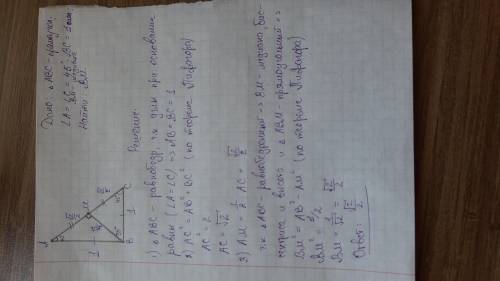 Дано: △ABC - прямоуг.
∠A = ∠C = 45°, BC = 1
BM
Найти: BM
A
M
C
B
1
1
√2/2
√2/2
45°
Решение:
1) △ABC - равнобедр., т.к. углы при основании
равны (∠A = ∠C) => AB = BC = 1
2) AC² = AB² + BC² (по теореме Пифагора)
AC² = 2
AC = √2
3) AM = 1/2 AC = √2/2
т.к. △ABC - равнобедренный => BM - медиана, бис-
сектриса и высота и △ABM - прямоугольный =>
BM² = AB² - AM² (по теореме Пифагора)
BM² = 1/2
BM = 1/√2 = √2/2
Ответ: √2/2